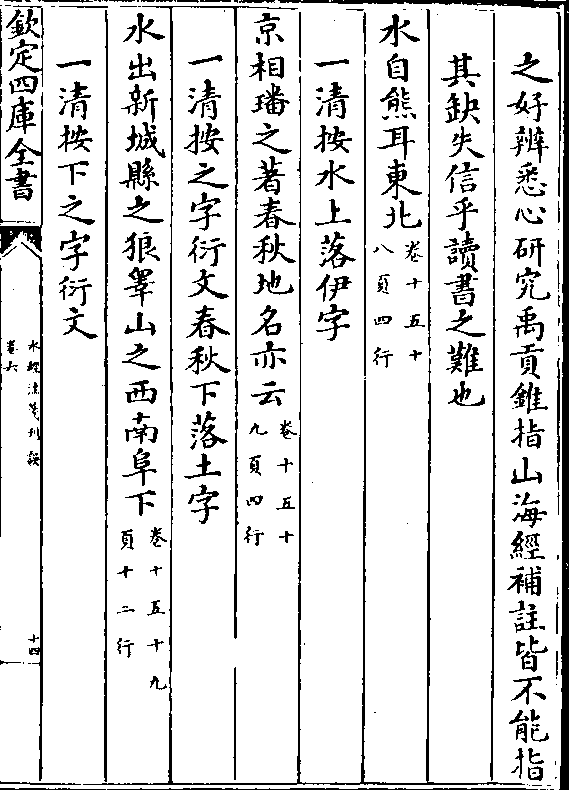 之好辨悉心研究禹貢錐指山海經補註皆不能指
其缺失信乎讀書之難也
水自熊耳東北卷十五十八頁四行
一清按水上落伊字
京相璠之著春秋地名亦云卷十五十九頁四行
一清按之字衍文春秋下落土字
水出新城縣之狼睾山之西南阜下卷十五十九頁十二行
一清按下之字衍文
欽定四庫全書
水經注箋刊誤
卷六
十四